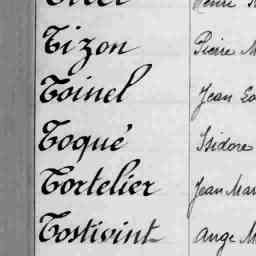 Tizon Pierre
Toinel Jean
Toqué Isidore
Tortelier Jean
Tostivint Ange